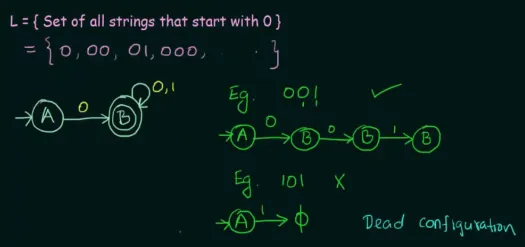 L = { Set of all strings that start with 0 }
= { 0, 00, 01, 000, . . . }
A 0 B 0,1
Eg. 001 ✓
A 0 B 0 B 1 B
Eg. 101 X
A 1 ϕ
Dead configuration